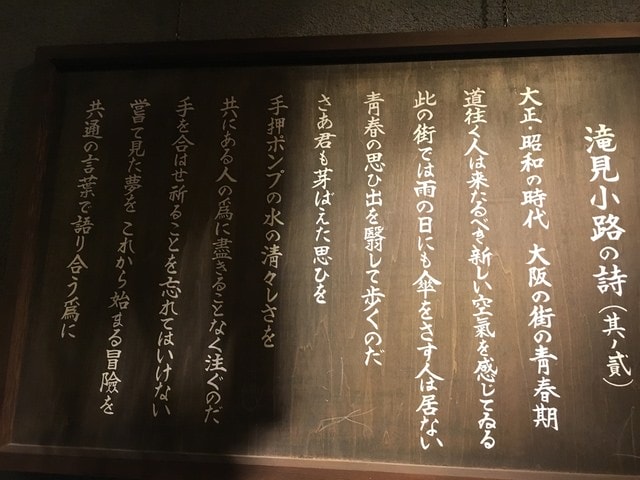 滝見小路の詩(其ノ貳)
大正・昭和の時代 大阪の街の青春期
道往く人は来たるべき新しい空氣を感じてゐる
此の街では雨の日にも傘をさす人は居ない
青春の思ひ出を翳して歩くのだ
さあ君も芽ばえた思ひを
手押ポンプの水の清々しさを
共にある人の爲に盡きることなく注ぐのだ
手を合はせ祈ることを忘れてはいけない
嘗て見た夢を これから始まる冒險を
共通の言葉で語り合う爲に